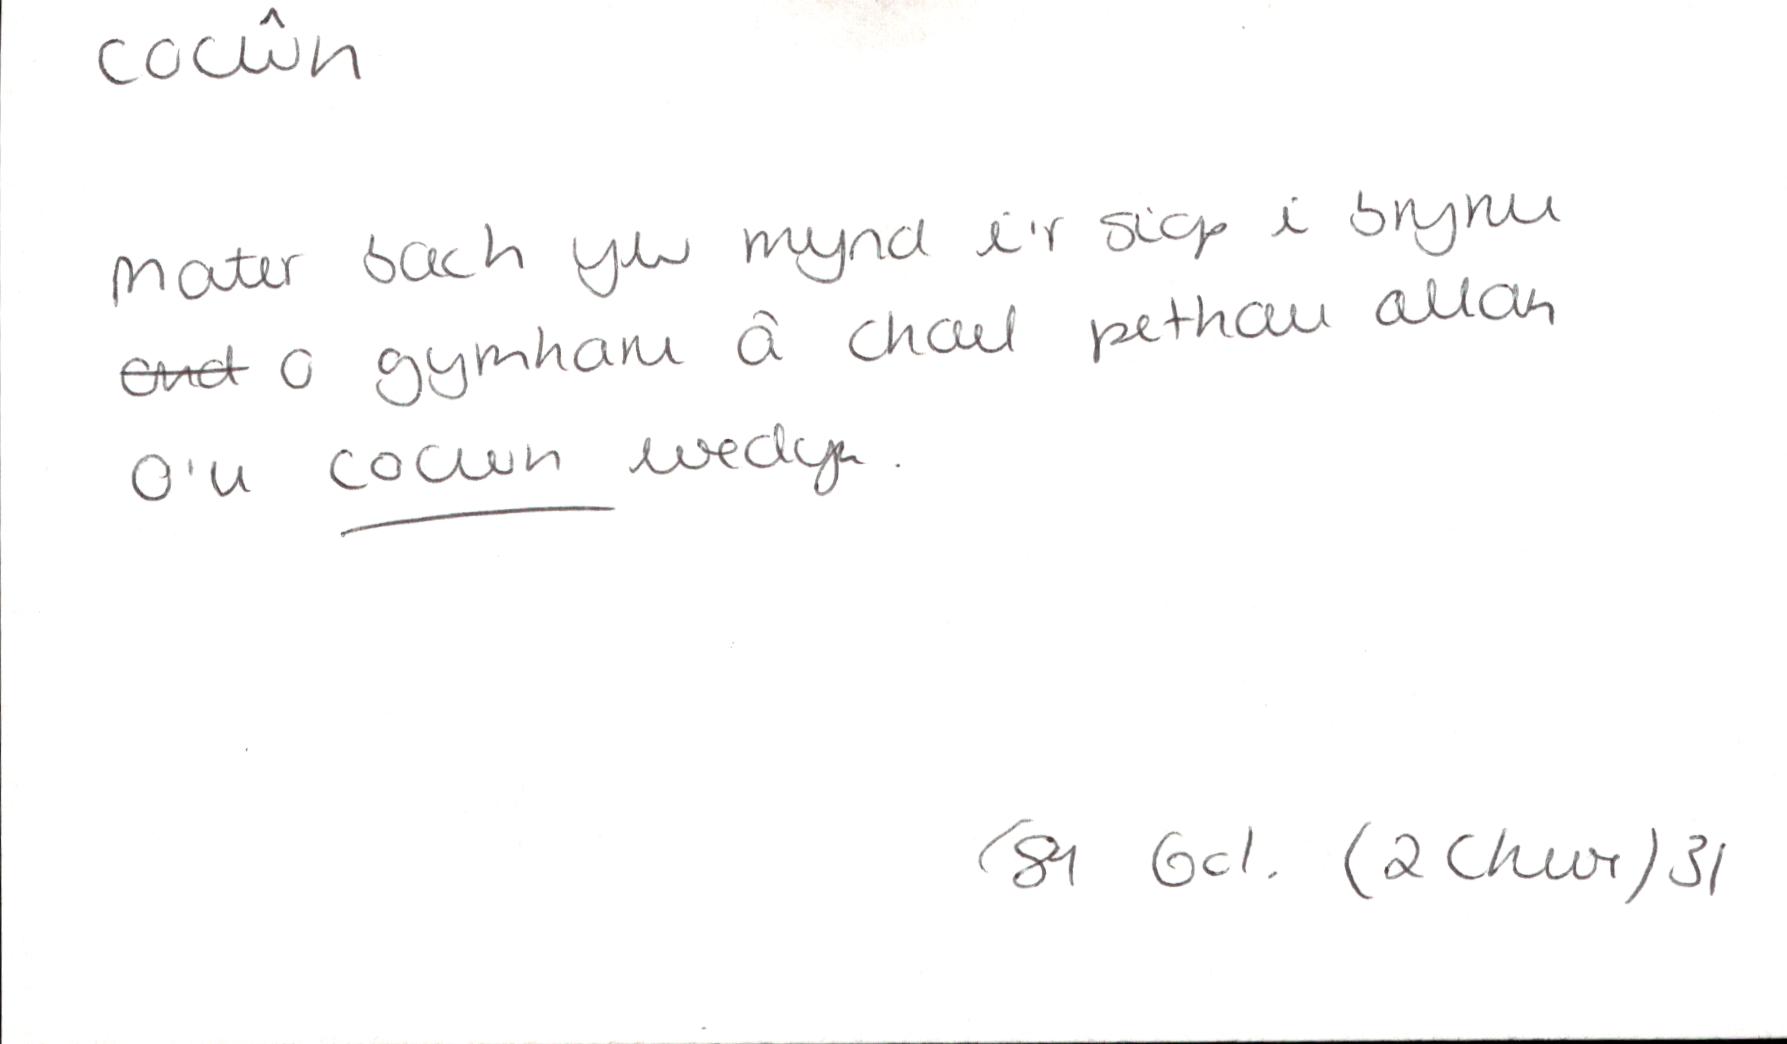 cocŵn
Mater bach yw mynd i'r siop i brynu
ond o gymharu â chael pethau allan
o'u cocwn wedyn.
'84 Gol. (2 Chwr) 31